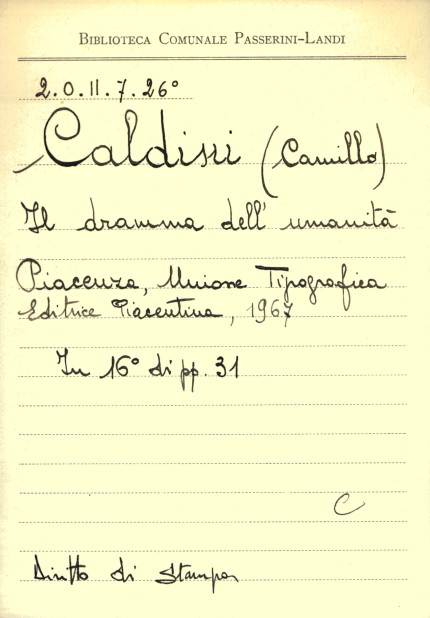 BIBLIOTECA COMUNALE PASSERINI-LANDI
2.0.II.7.26°
Caldini (Camillo)
Il dramma dell' umanità
Piacenza, Unione Tipografica
Editrice Piacentina, 1967
In 16° di pp. 31
C
Diritto di Stampa